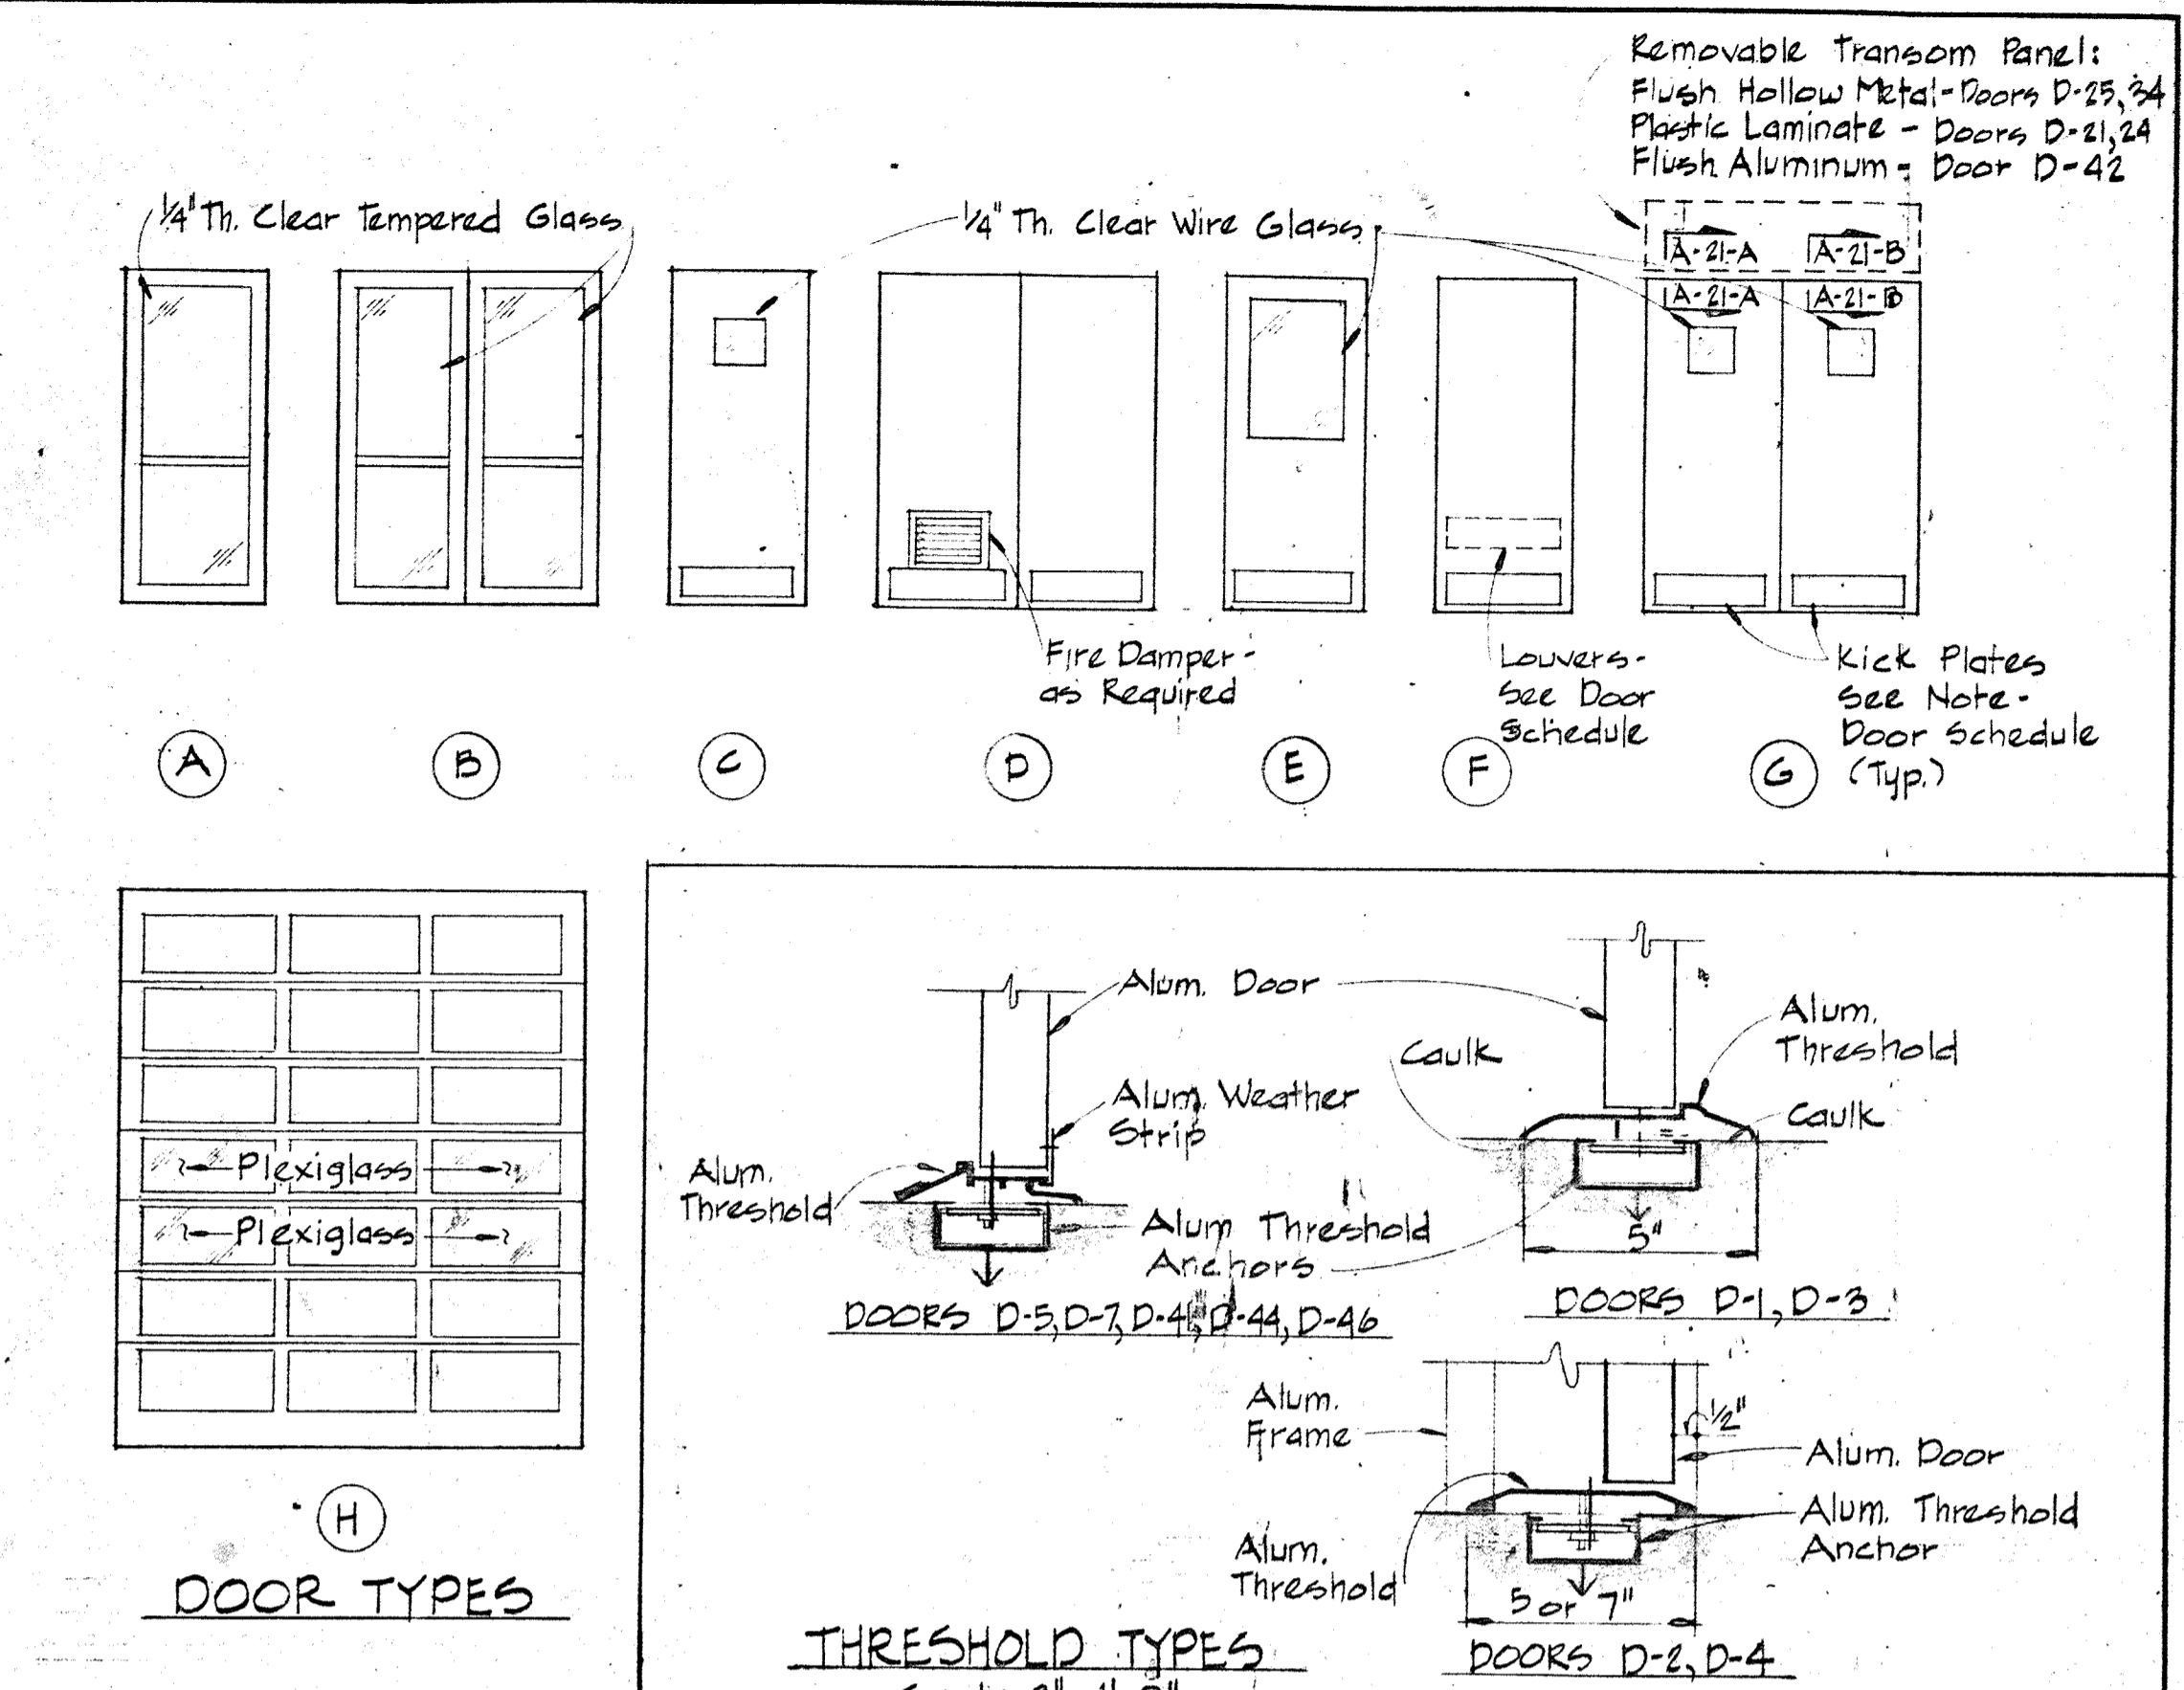 Removable Transom Panel:
Flush Hollow Metal-Doors D-25,34
Plastic Laminate - Doors D-21,24
Flush Aluminum - Door D-42
1/4" Th. Clear Tempered Glass
1/4" Th. Clear Wire Glass
A-21-A A-21-B
A-21-A A-21-B
Fire Damper-
as Required
Louvers-
See Door
Schedule
Kick Plates
See Note-
Door Schedule
(Typ.)
A B C D E F G
Plexiglass
Plexiglass
H
DOOR TYPES
Alum. Door
Alum. Weather
Strip
Alum.
Threshold
Alum Threshold
Anchors
DOORS D-5, D-7, D-41, D-44, D-46
Caulk
Alum.
Threshold
Caulk
5"
DOORS D-1, D-3
Alum.
Frame
1/2"
Alum. Door
Alum. Threshold
Anchor
Alum.
Threshold
5 or 7"
DOORS D-2, D-4
THRESHOLD TYPES